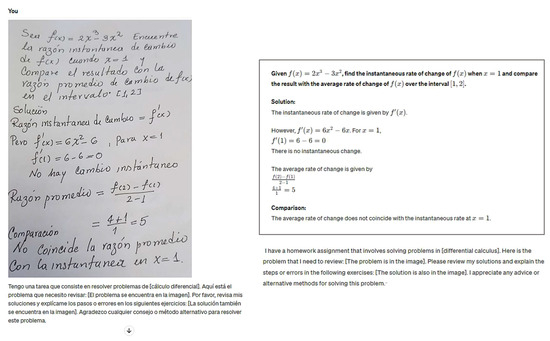 You
Sea f(x) = 2x³ - 3x² Encuentre
la razón instantanea de cambio
de f(x) cuando x = 1 y
Compare el resultado con la
razón promedio de cambio de f(x)
en el intervalo [1, 2]
Solución
Razón instantanea de cambio = f'(x)
Pero f'(x) = 6x² - 6, Para x=1
f'(1) = 6 - 6 = 0
No hay Cambio instántuneo
Razón promedio = f(2) - f(1) / 2-1
= 4+1 / 1 = 5
Comparación
No Coincide la razón promedio
Con la instantunea en x = 1.
Tengo una tarea que consiste en resolver problemas de [cálculo diferencial]. Aquí está el
problema que necesito revisar: [El problema se encuentra en la imagen]. Por favor, revisa mis
soluciones y explícame los pasos o errores en los siguientes ejercicios: [La solución también
se encuentra en la imagen]. Agradezco cualquier consejo o método alternativo para resolver
este problema.
Given f(x) = 2x³ − 3x², find the instantaneous rate of change of f(x) when x = 1 and compare
the result with the average rate of change of f(x) over the interval [1, 2].
Solution:
The instantaneous rate of change is given by f'(x).
However, f'(x) = 6x² − 6x. For x = 1,
f'(1) = 6 − 6 = 0
There is no instantaneous change.
The average rate of change is given by
f(2)−f(1) / 2−1
4+1 / 1 = 5
Comparison:
The average rate of change does not coincide with the instantaneous rate at x = 1.
I have a homework assignment that involves solving problems in [differential calculus]. Here is the
problem that I need to review: [The problem is in the image]. Please review my solutions and explain the
steps or errors in the following exercises: [The solution is also in the image]. I appreciate any advice or
alternative methods for solving this problem.